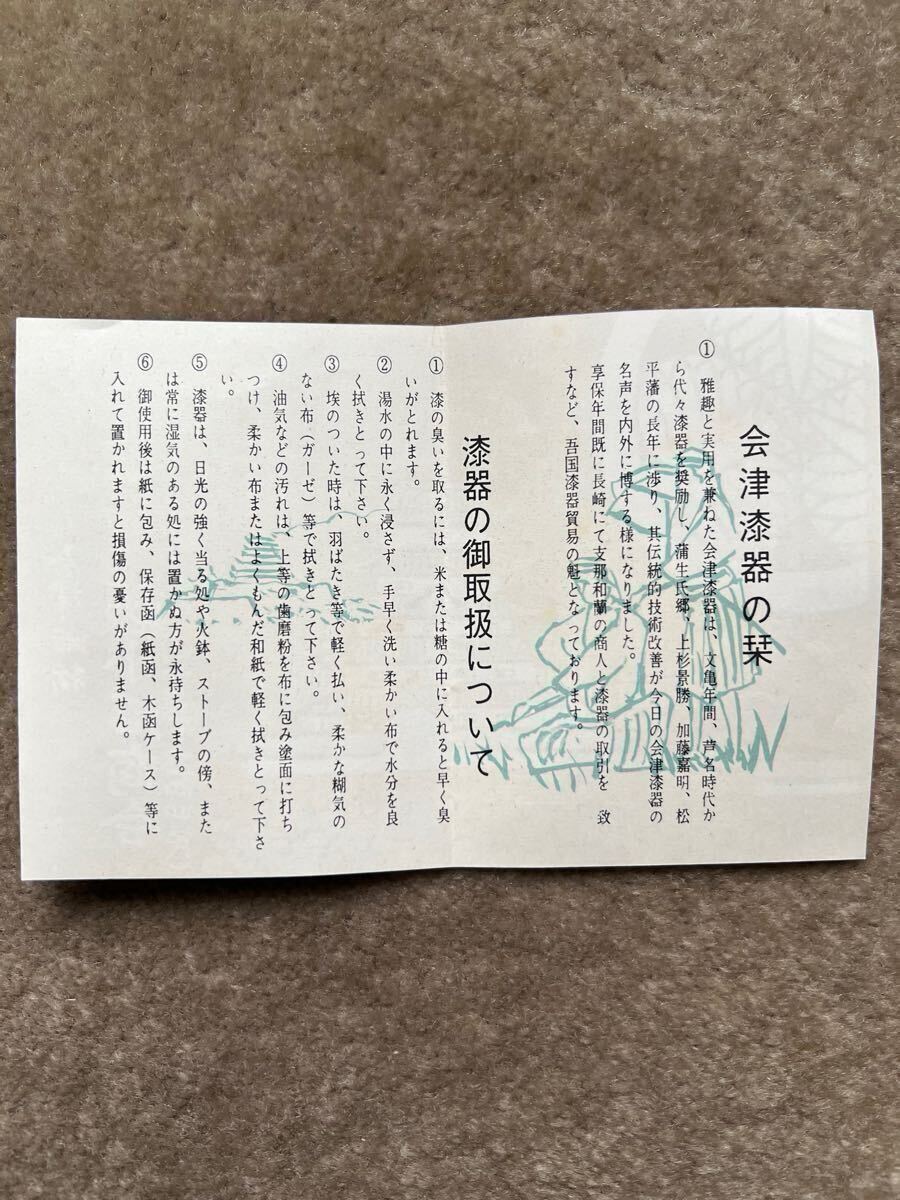 会津漆器の栞
① 雅趣と実用を兼ねた会津漆器は、文亀年間、芦名時代か
ら代々漆器を奨励し、蒲生氏郷、上杉景勝、加藤嘉明、松
平藩の長年に渉り、其伝統的技術改善が今日の会津漆器の
名声を内外に博する様になりました。
享保年間既に長崎にて支那和蘭の商人と漆器の取引を 致
すなど、吾国漆器貿易の魁となっております。
漆器の御取扱について
① 漆の臭いを取るには、米または糖の中に入れると早く臭
いがとれます。
② 湯水の中に永く浸さず、手早く洗い柔かい布で水分を良
く拭きとって下さい。
③ 埃のついた時は、羽ばたき等で軽く払い、柔かな糊気の
ない布（ガーゼ）等で拭きとって下さい。
④ 油気などの汚れは、上等の歯磨粉を布に包み塗面に打ち
つけ、柔かい布またはよくもんだ和紙で軽く拭きとって下さ
い。
⑤ 漆器は、日光の強く当る処や火鉢、ストーブの傍、また
は常に湿気のある処には置かぬ方が永持ちします。
⑥ 御使用後は紙に包み、保存函（紙函、木函ケース）等に
入れて置かれますと損傷の憂いがありません。